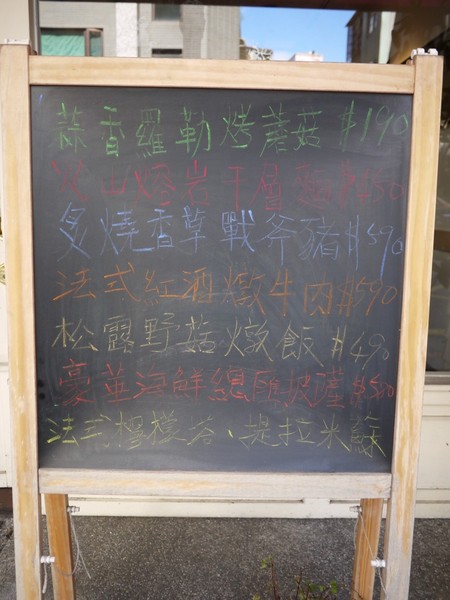 蒜香羅勒烤蘑菇 $190
火山熔岩千層麵 $450
炙燒香草戰斧豬 $590
法式紅酒燉牛肉 $590
松露野菇燉飯 $490
豪華海鮮總匯披薩 $580
法式檸檬塔、提拉米蘇